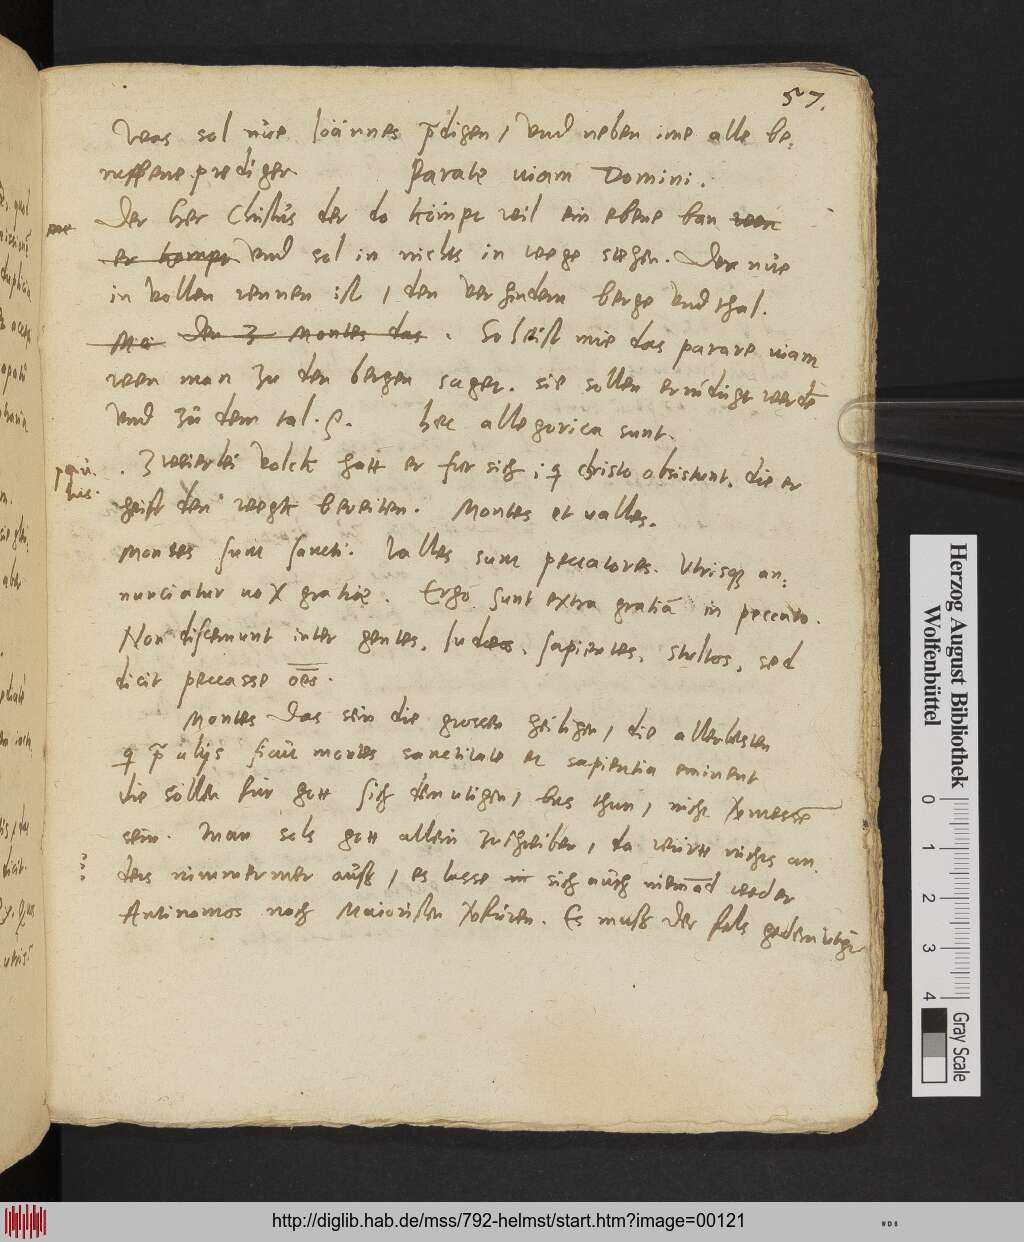 57.
Was sol nue Ioannes p̄digen / vnd neben ime alle be:
ruffene prediger parate uiam Domini.
Der her Christus der do kömpt wil ein ebene ban wen
er kompt vnd sol im nichts im wege stehen. Den nue
in vollen rennen ist / den verhindern berge vnd thal.
Ma Den 3 Montes das. So heist nue das parare uiam
wen man zu den bergen saget. sie sollen ernidrigt werdē
vnd zu dem tal. hec allegorica sunt.
. Zweierlei volck hatt er fur sich; q christo obsistunt. die er
heist den wegk bereiten. Montes et ualles.
Montes sunt sancti. Valles sunt peccatores. Vtrisq an:
nunciatur uox gratiae. Ergo sunt extra gratiā in peccato.
Non discernunt inter gentes, Iudeos, sapientes, stultos, sed
dicit peccasse oēs.
Montes das sein die grossen heiligen / die allerbesten
q p̄ alijs sicut montes sanctitate et sapientia eminent
die sollen fur gott sich demutigen / bus thun / nicht vermessē
sein. Man sols gott allein zuschreiben / da wirtt nichts an:
ders nimmermer auß / es lasse sich auch niemād weder
Antinomos noch Maioristen verfüren. Es muß der fels gedemutigt
Herzog August Bibliothek
Wolfenbüttel
0 1 2 3 4
Gray Scale
http://diglib.hab.de/mss/792-helmst/start.htm?image=00121